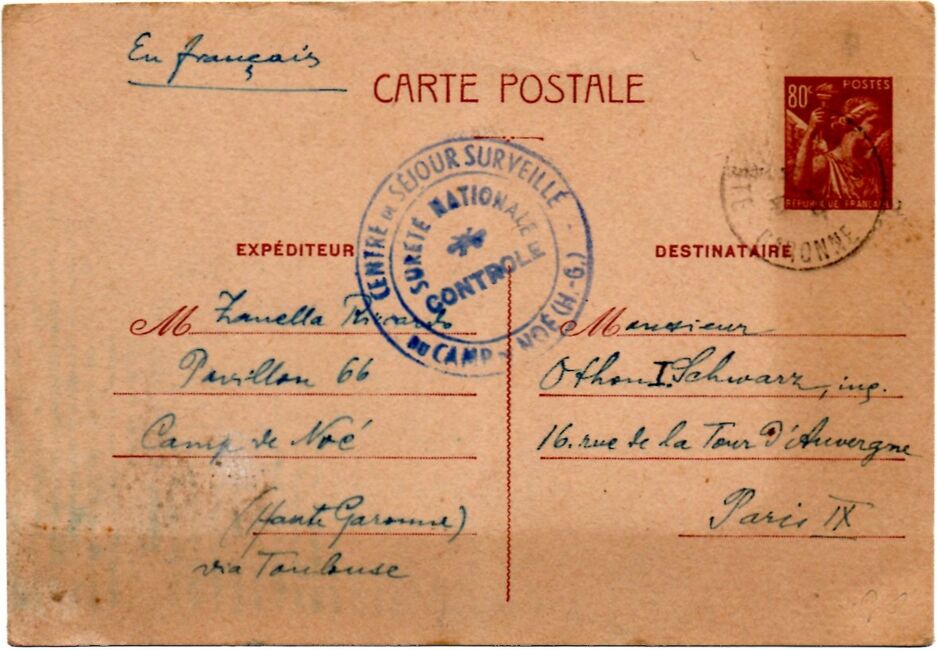 En français
CARTE POSTALE
80c
POSTES
REPUBLIQUE FRANÇAISE
GARONNE
CENTRE DE SÉJOUR SURVEILLÉ
DU CAMP DE NOÉ (H.-G.)
SURETÉ NATIONALE
CONTROLE
EXPÉDITEUR
M Zanella Riccardo
Pavillon 66
Camp de Noé
(Haute Garonne)
via Toulouse
DESTINATAIRE
M Monsieur
Othon I. Schwarz, ing.
16. rue de la Tour d'Auvergne
Paris IX